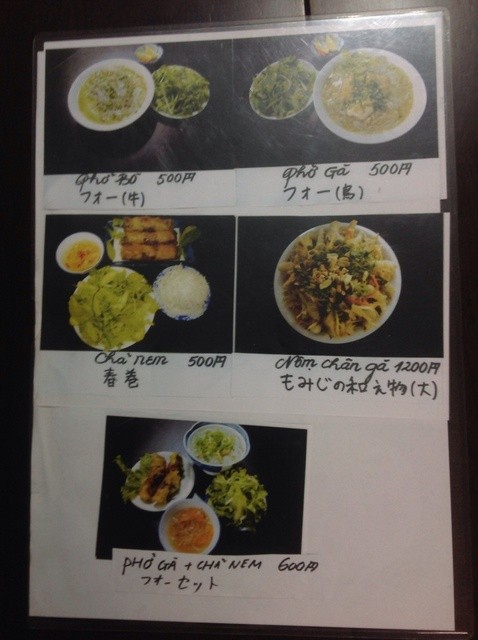 Phở Bò 500円
フォー(牛)
Phở Gà 500円
フォー(鳥)
Chả nem 500円
春巻
Nộm chân gà 1200円
もみじの和え物(大)
PHỞ GÀ + CHẢ NEM 600円
フォーセット